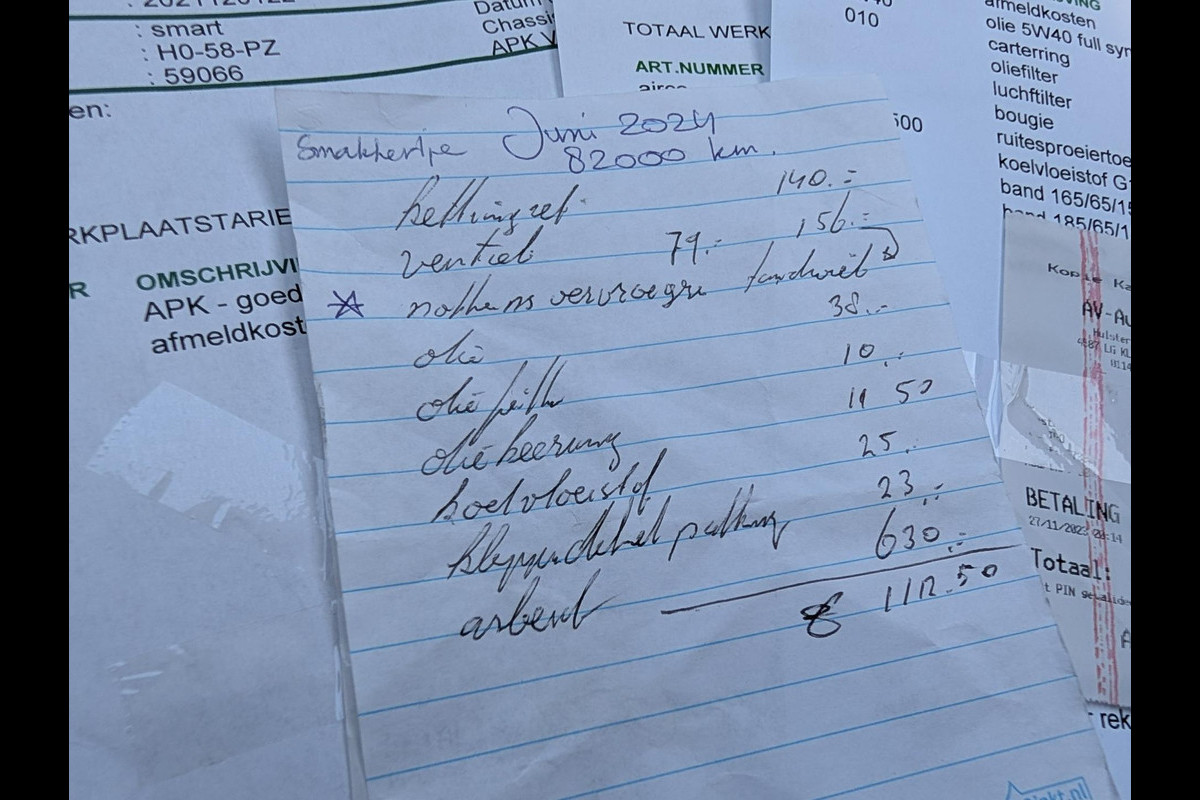 : smart
: H0-58-PZ
: 59066
Datum
Chassi
APK V
en:
TOTAAL WERK
ART.NUMMER
010
500
afmeldkosten
olie 5W40 full syn
carterring
oliefilter
luchftilter
bougie
ruitesproeiertoe
koelvloeistof G
band 165/65/15
band 185/65/1
RKPLAATSTARIE
R OMSCHRIJVI
APK - goed
afmeldkost
Juni 2024
82000 km.
kettingset 140.-
ventiel 79.- 156.-
nokkens vervroegre tandwiel
olie 38.-
olie filter 10.-
oliekeerring 11 50
koelvloeistof 25.-
kleppendeksel pakking 23.-
arbeid 630.-
€ 1112.50
Kopie Ka
AV-Au
BETALING
27/11/2023
Totaal:
t PIN
rek